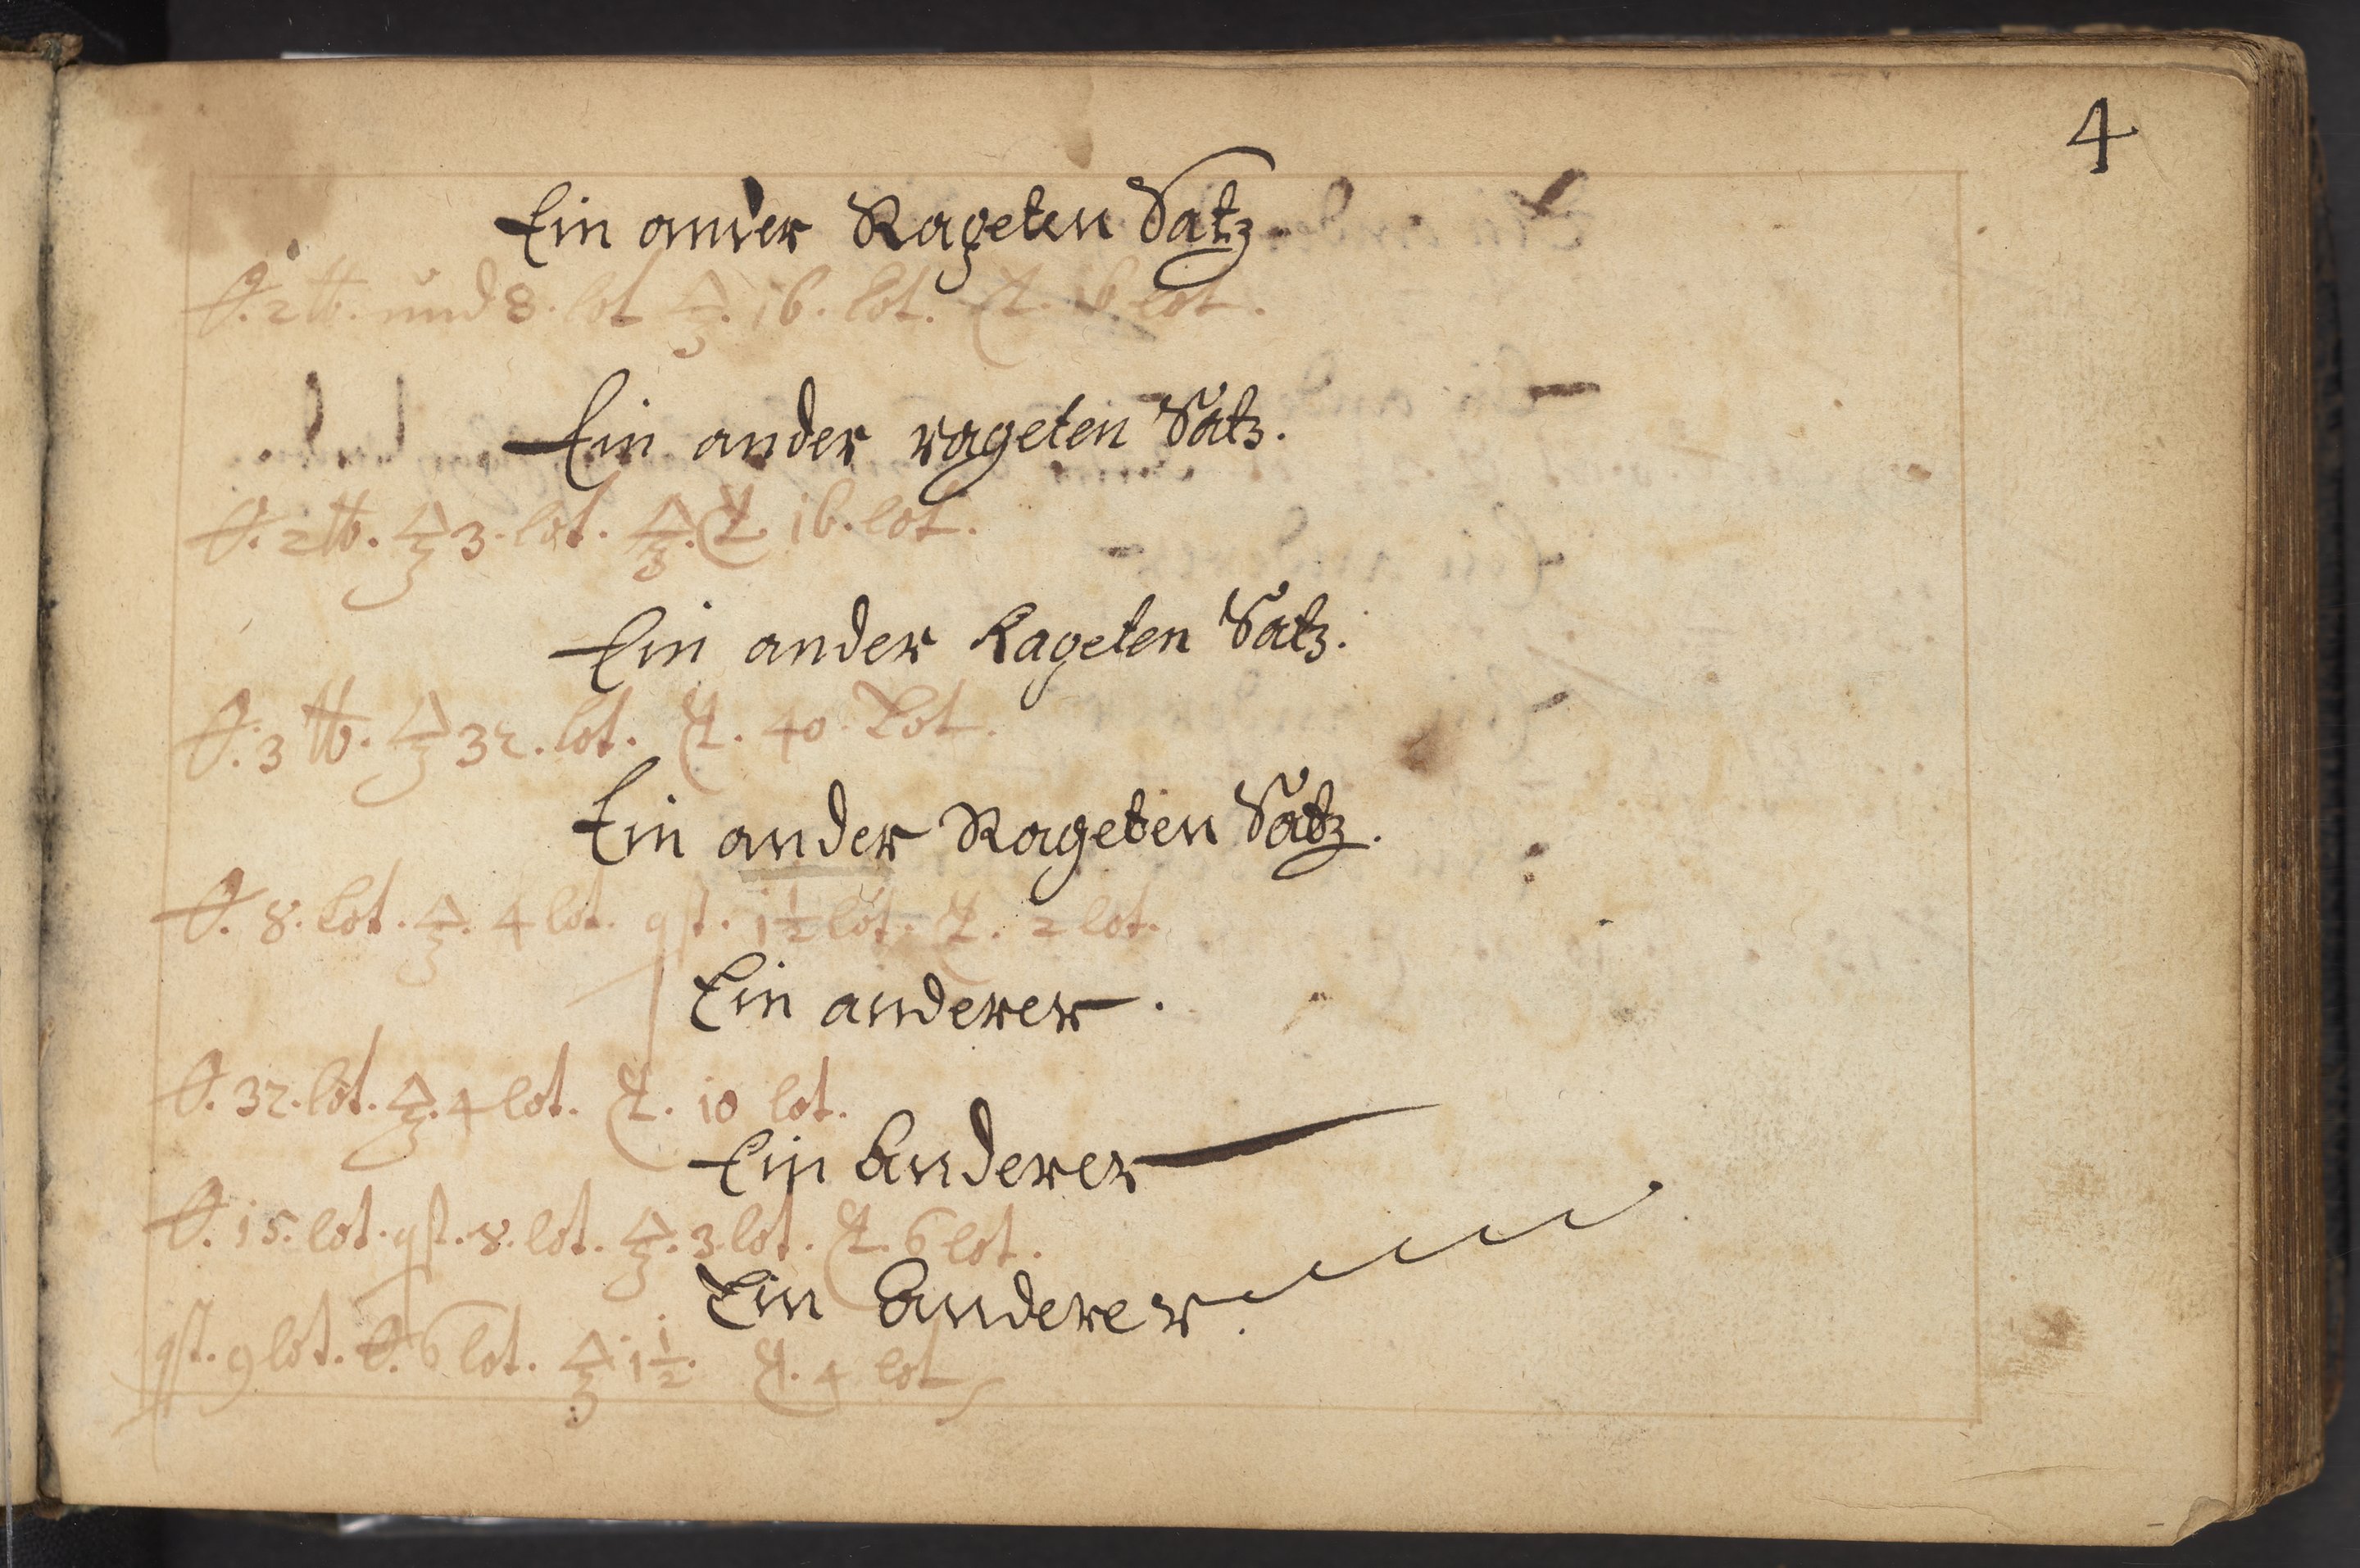 4
Ein ander Rageten Satz
2 ℔. und 8. lot 🜍. 16. lot. 16. lot.
Ein ander rageten Satz.
2 ℔. 🜍 3. lot. 🜍. 16. lot.
Ein ander Rageten Satz.
3 ℔. 🜍 32. lot. 40. Lot.
Ein ander Rageten Satz.
8. Lot. 🜍. 4 lot. gst. 1½ lot. 2 lot.
Ein anderer.
32. lot. 🜍. 4 lot. 10 lot.
Ein Anderer
15. lot. gst. 8. lot. 🜍. 3. lot. 6 lot.
Ein Anderer.
gst. 9 lot. 6 lot. 🜍 1½. 4 lot